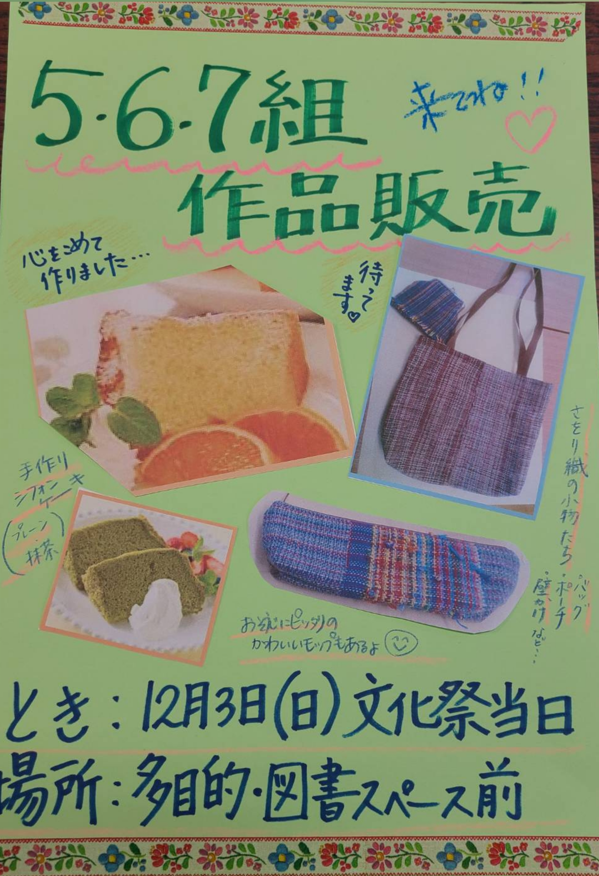 5・6・7組
来てね!!
作品販売
心をこめて
作りました…
待って
ます♡
さをり織の小物たち
・バッグ
・ポーチ
・壁かけ など…
手作り
シフォン
ケーキ
(プレーン、
抹茶)
お掃除にピッタリの
かわいいモップもあるよ
とき:12月3日(日)文化祭当日
場所:多目的・図書スペース前